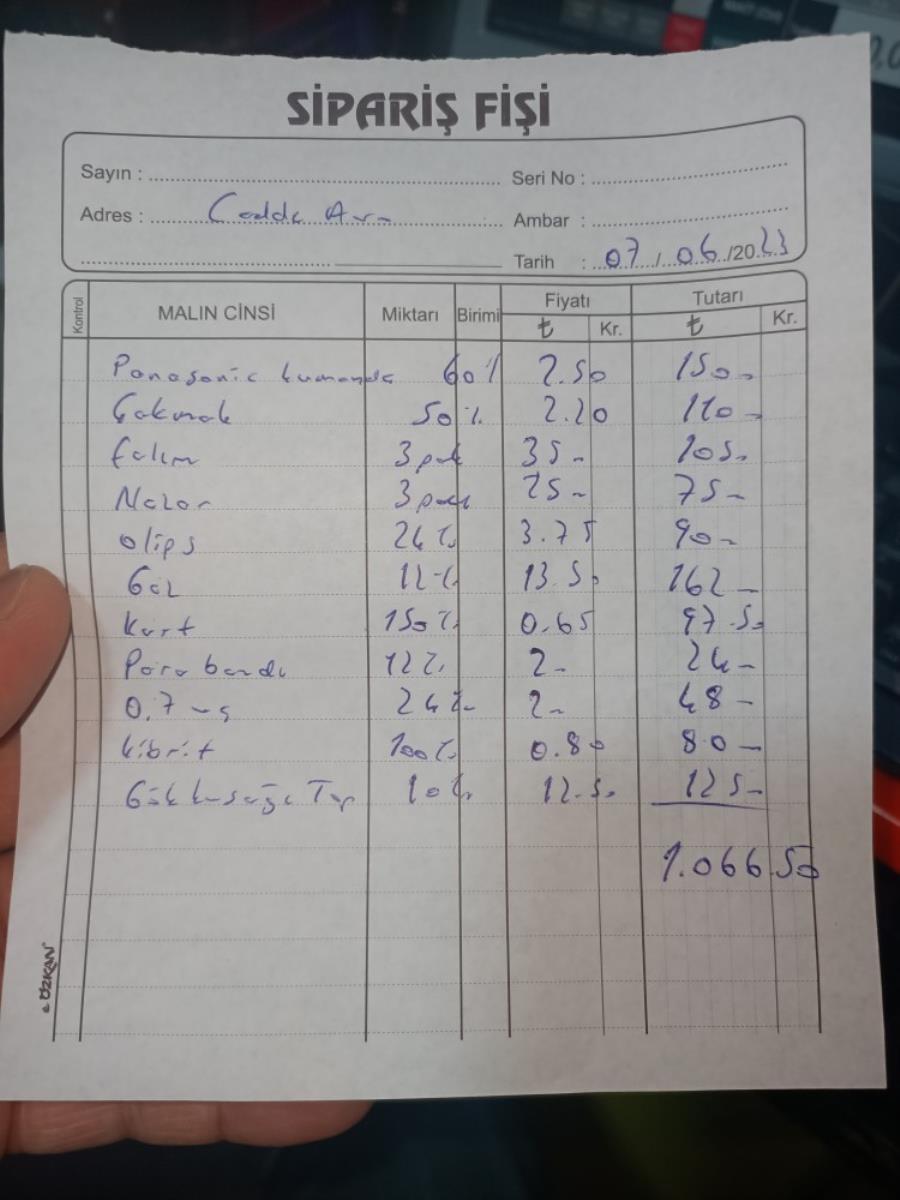 SİPARİŞ FİŞİ
Sayın : Seri No :
Adres : Cadde Ambar :
Tarih : 07/06/2023
Kontrol MALIN CİNSİ Miktarı Birimi Fiyatı ₺ Kr. Tutarı ₺ Kr.
Panasonic kumanda 60 % 2.50 150-
Çakmak 50 % 2.20 110-
falım 3 pak 35- 105-
Nazar 3 pak 25- 75-
olips 24 % 3.75 90-
12 % 13.50 162-
Kart 150 % 0.65 97.50
Para bandı 12 % 2- 24-
0.7 24 % 2- 48-
kibrit 100 % 0.80 80-
Gökkuşağı Top 10 % 12.50 125-
1.066.50
ÖZKAN